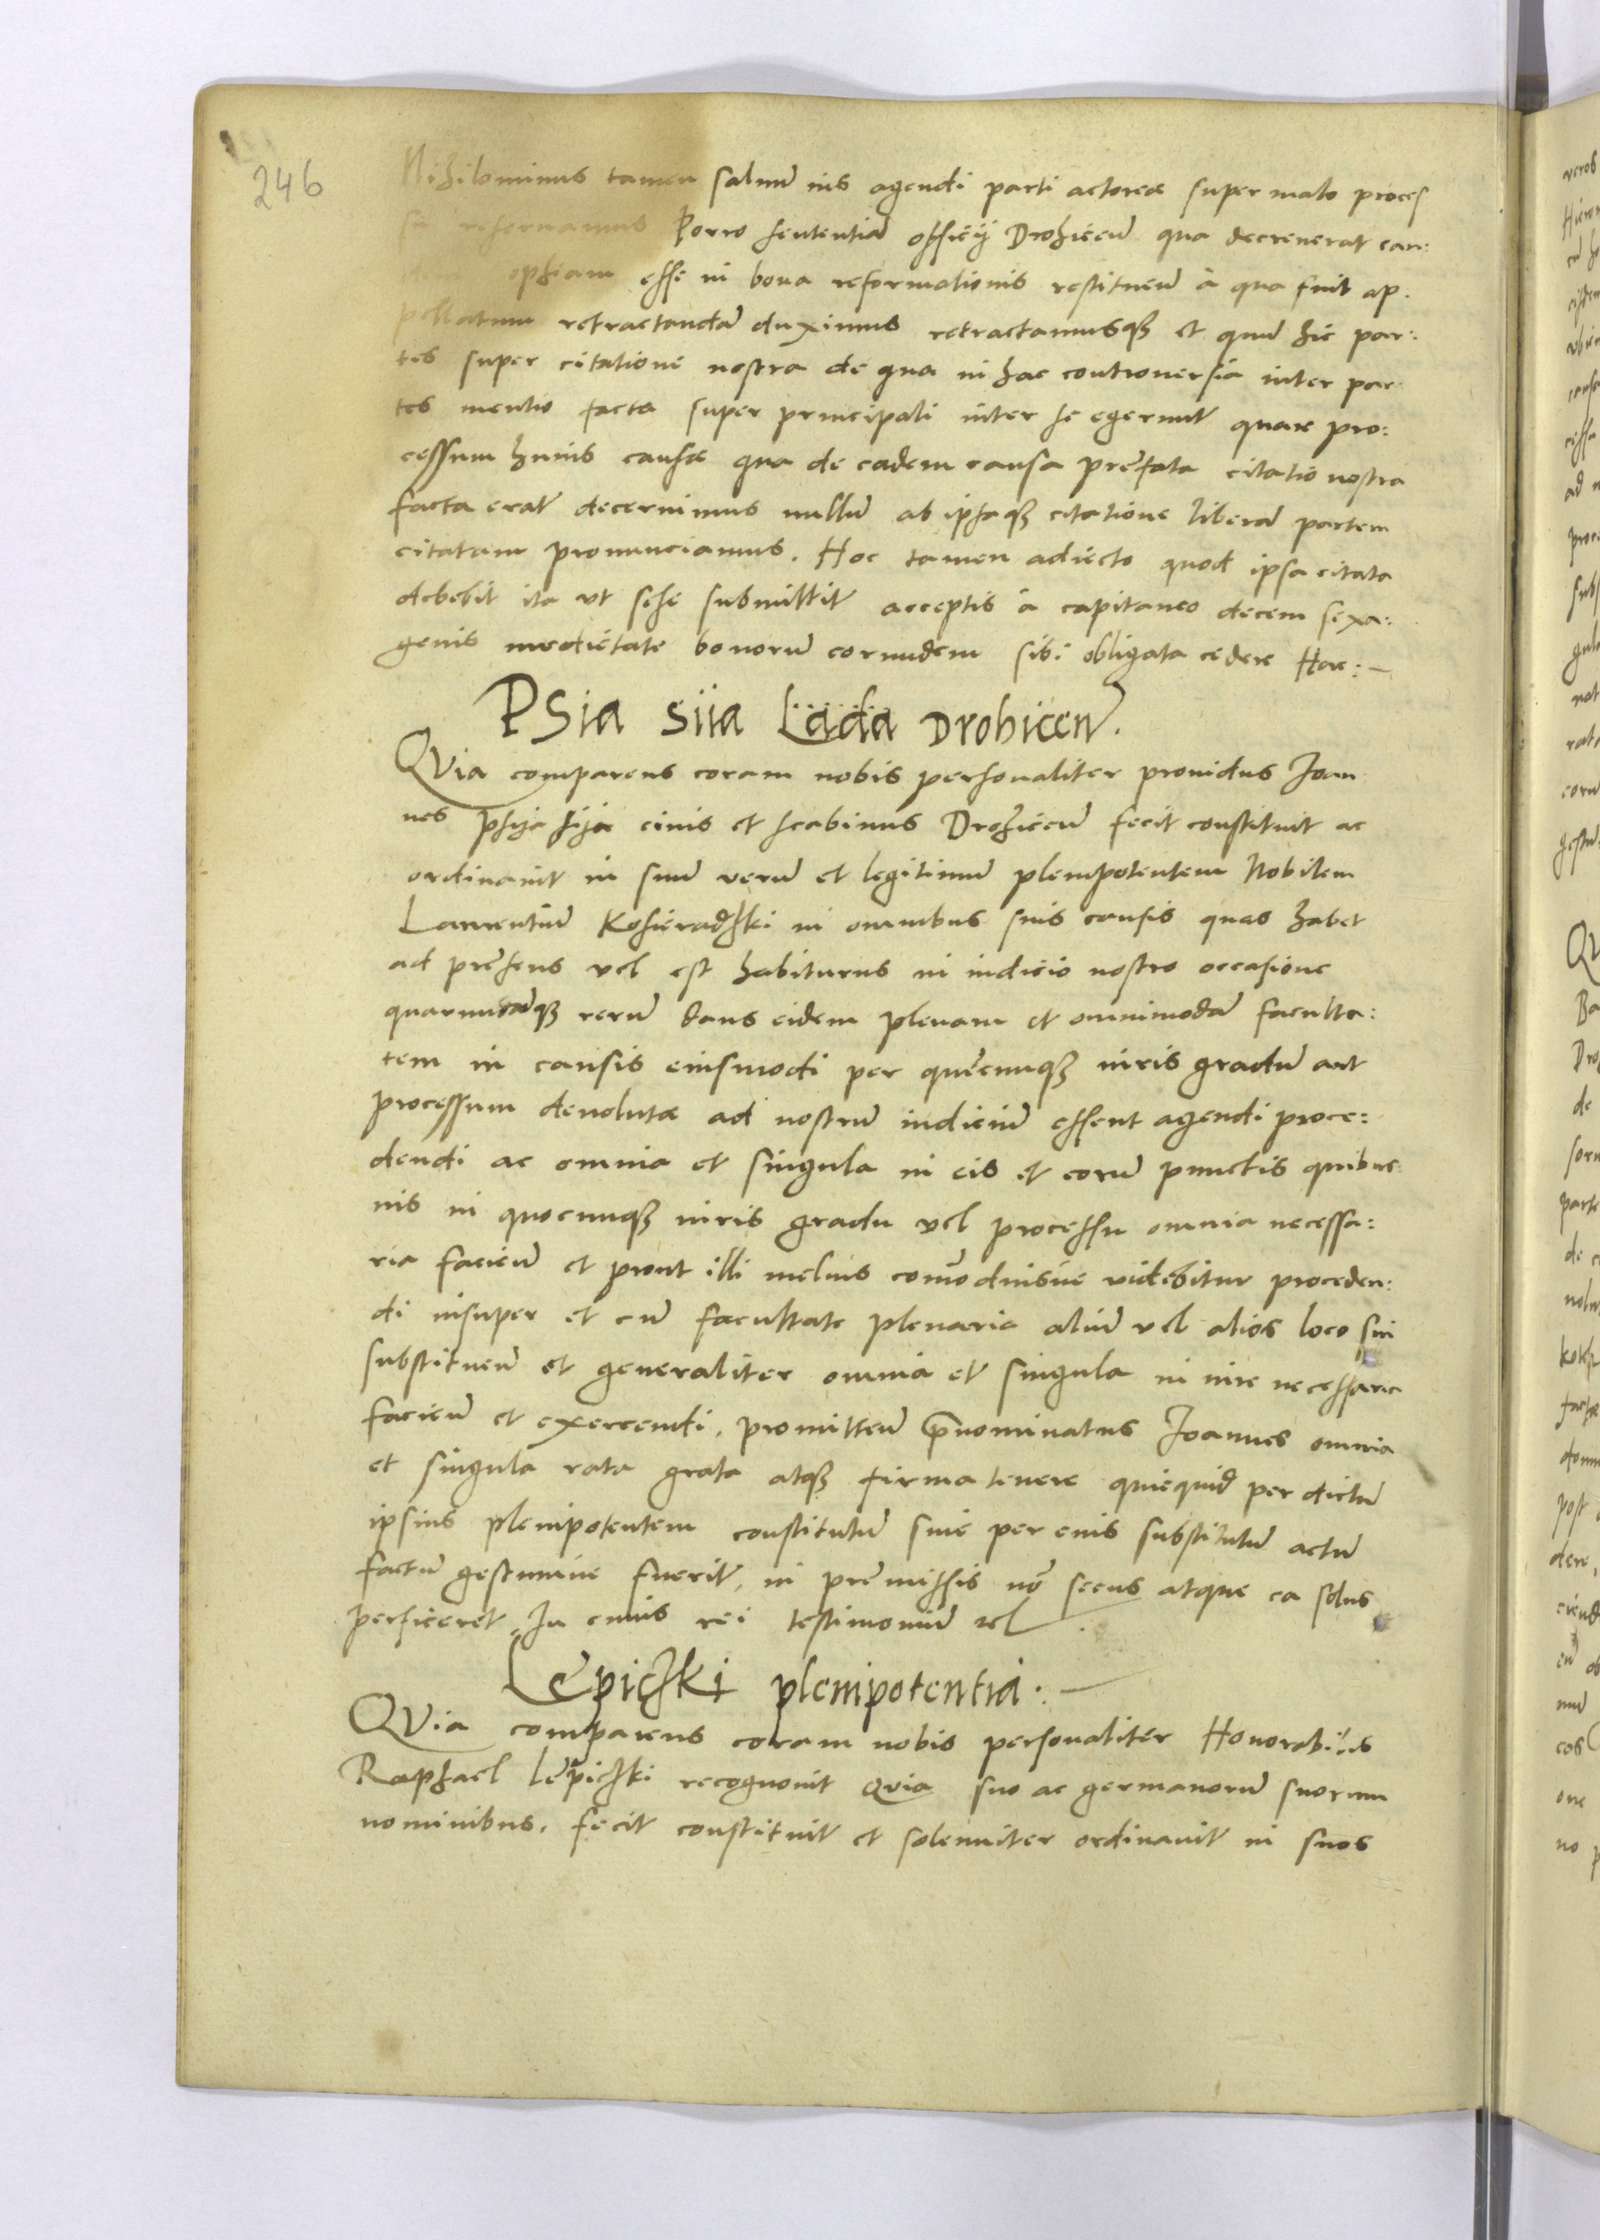 246
Nihilominus tamen saluũ ius agendi parti actoreæ super malo proces
su reseruamus Porro sententiã officij Drohiceñ qua decreuerat ean:
ophiam esse in bona reformationis restitueñ à qua fuit ap.
pellatum retractandã duximus retractamusqʒ et quiã hic par:
tes super citatione nostra de qua in hac controuersia inter par
tes mentio facta super principali inter se egerunt quare pro:
cessum huius causæ qua de eadem causa præfata citatio nostra
facta erat decernimus nullũ ab ipsaqʒ citatione liberã partem
citatam pronunciamus. Hoc tamen adiecto quod ipsa citata
debebit ita vt sese submittit acceptis à capitaneo decem sexa:
genis medietate bonorũ eorundem sibi obligata cedere Hac:—
PSia Siia Lada Drohiceñ.
QVia comparens coram nobis personaliter prouidus Ioan
nes Psija sija ciuis et scabinus Drohiceñ fecit constituit ac
ordinauit in suũ verũ et legitimũ plenipotentem Nobilem
Laurentiũ Kosieradzki in omnibus suis causis quas habet
ad præsens vel est habiturus in iudicio nostro occasione
quarumcũqʒ rerũ dans eidem plenam et omnimodã faculta:
tem in causis eiusmodi per quemcunqʒ iuris gradũ aut
processum deuolutæ ad nostrũ iudiciũ essent agendi proce:
dendi ac omnia et singula in eis et eorũ punctis quibus
uis in quocunqʒ iuris gradu vel processu omnia necessa:
ria facieñ et prout illi melius com̃odiusue videbitur proceden:
di insuper et cũ facultate plenaria aliũ vel alios loco sui
substitueñ et generaliter omnia et singula in iure necessaria
facieñ et exercendi, promitteñ p̃nominatus Ioannes omnia
et singula rata grata atqʒ firma tenere quicquid per dictũ
ipsius plenipotentem constitutũ siue per eius substitutũ actũ
factũ gestumue fuerit, in præmissis nõ secus atque ea solus
perficeret. In cuius rei testimoniũ &c.
Lepiczki plenipotentia.—
QVia comparens coram nobis personaliter Honorabilis
Raphael Lepiczki recognouit Quia suo ac germanorũ suorum
nominibus, fecit constituit et solenniter ordinauit in suos